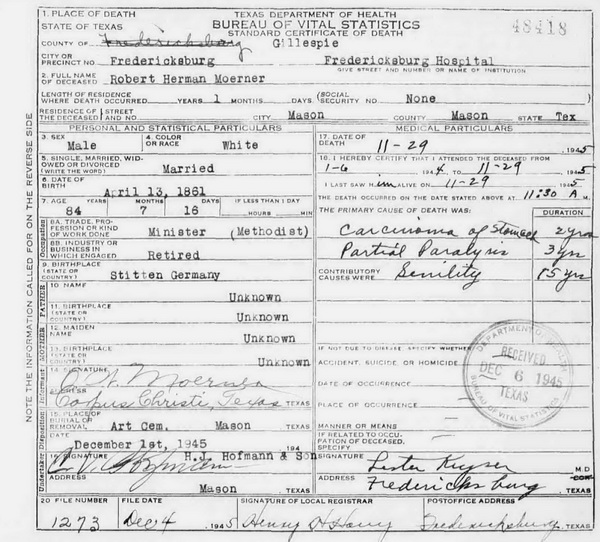 TEXAS DEPARTMENT OF HEALTH
BUREAU OF VITAL STATISTICS
STANDARD CERTIFICATE OF DEATH
48418
1. PLACE OF DEATH
STATE OF TEXAS
COUNTY OF Fredericksburg Gillespie
CITY OR PRECINCT NO. Fredericksburg Fredericksburg Hospital
GIVE STREET AND NUMBER OR NAME OF INSTITUTION
2. FULL NAME OF DECEASED Robert Herman Moerner
LENGTH OF RESIDENCE WHERE DEATH OCCURRED YEARS 1 MONTHS DAYS (SOCIAL SECURITY NO. None
RESIDENCE OF THE DECEASED (STREET AND NO. CITY Mason COUNTY Mason STATE Tex
PERSONAL AND STATISTICAL PARTICULARS
3. SEX Male
4. COLOR OR RACE White
5. SINGLE, MARRIED, WIDOWED OR DIVORCED (WRITE THE WORD) Married
6. DATE OF BIRTH April 13, 1861
7. AGE YEARS MONTHS DAYS IF LESS THAN 1 DAY
84 7 16 HOURS MIN
8A. TRADE, PROFESSION OR KIND OF WORK DONE Minister (Methodist)
8B. INDUSTRY OR BUSINESS IN WHICH ENGAGED Retired
9. BIRTHPLACE (STATE OR COUNTRY) Stitten Germany
10. NAME Unknown
11. BIRTHPLACE (STATE OR COUNTRY) Unknown
12. MAIDEN NAME Unknown
13. BIRTHPLACE (STATE OR COUNTRY) Unknown
14. SIGNATURE Moerner
ADDRESS Corpus Christi, Texas TEXAS
15. PLACE OF BURIAL OR REMOVAL Art Cem. Mason TEXAS
DATE December 1st, 1945 194
16. SIGNATURE H.J. Hofmann & Son
ADDRESS Mason TEXAS
MEDICAL PARTICULARS
17. DATE OF DEATH 11-29 1945
I HEREBY CERTIFY THAT I ATTENDED THE DECEASED FROM
1-6 1944 TO 11-29 1945
I LAST SAW Him ALIVE ON 11-29 1945
THE DEATH OCCURRED ON THE DATE STATED ABOVE AT 11:30 A M.
THE PRIMARY CAUSE OF DEATH WAS: DURATION
Carcinoma of Stomach 2 yrs
Partial Paralysis 3 yr
CONTRIBUTORY CAUSES WERE: Senility 15 yrs
IF NOT DUE TO DISEASE, SPECIFY WHETHER
ACCIDENT, SUICIDE, OR HOMICIDE
DATE OF OCCURRENCE
PLACE OF OCCURRENCE
MANNER OR MEANS
IF RELATED TO OCCUPATION OF DECEASED, SPECIFY
SIGNATURE Lester Keyser M.D.
ADDRESS Fredericksburg TEXAS
DEPARTMENT OF HEALTH
RECEIVED
DEC 6 1945
TEXAS
BUREAU OF VITAL STATISTICS
20 FILE NUMBER FILE DATE SIGNATURE OF LOCAL REGISTRAR POSTOFFICE ADDRESS
1273 Dec 4 1945 Henry Fredericksburg TEXAS
NOTE THE INFORMATION CALLED FOR ON THE REVERSE SIDE
Undertaker Disposition Informant MOTHER FATHER Occupation